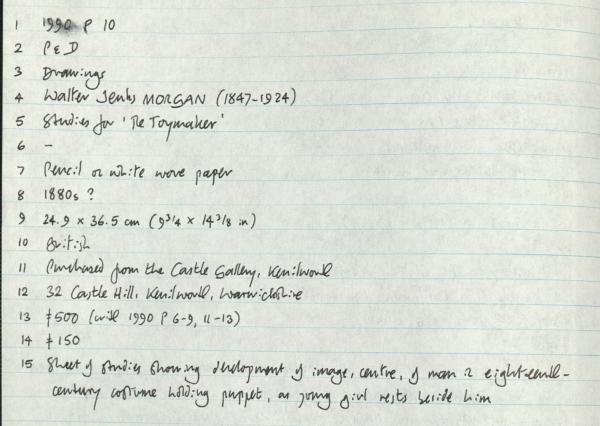 1 1990 P 10
2 P & D
3 Drawings
4 Walter Jenks MORGAN (1847-1924)
5 Studies for 'The Toymaker'
6 -
7 Pencil on white wove paper
8 1880s ?
9 24.9 × 36.5 cm (9 3/4 × 14 3/8 in)
10 British
11 Purchased from the Castle Gallery, Kenilworth
12 32 Castle Hill, Kenilworth, Warwickshire
13 £500 (with 1990 P 6-9, 11-13)
14 £150
15 Sheet of studies showing development of image, centre, of man in eighteenth-
century costume holding puppet, as young girl rests beside him